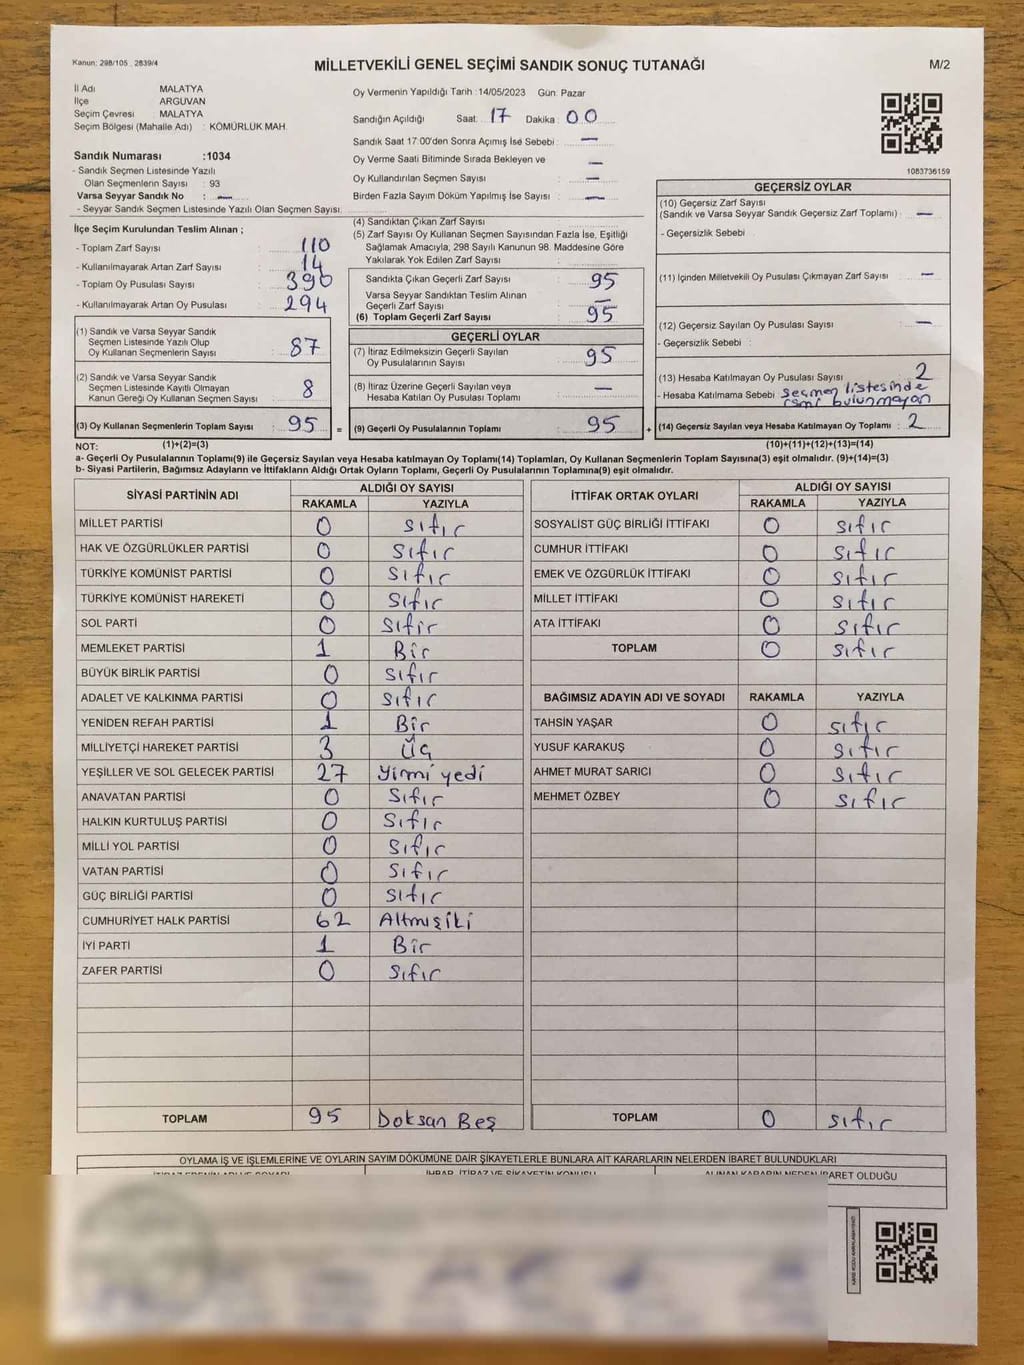 Kanun: 298/105 , 2839/4
MİLLETVEKİLİ GENEL SEÇİMİ SANDIK SONUÇ TUTANAĞI
M/2
İl Adı MALATYA
İlçe ARGUVAN
Seçim Çevresi MALATYA
Seçim Bölgesi (Mahalle Adı) : KÖMÜRLÜK MAH.
Sandık Numarası :1034
- Sandık Seçmen Listesinde Yazılı
Olan Seçmenlerin Sayısı : 93
Varsa Seyyar Sandık No : —
- Seyyar Sandık Seçmen Listesinde Yazılı Olan Seçmen Sayısı:
Oy Vermenin Yapıldığı Tarih :14/05/2023 Gün: Pazar
Sandığın Açıldığı Saat: 17 Dakika: 00
Sandık Saat 17:00'den Sonra Açımış İse Sebebi : —
Oy Verme Saati Bitiminde Sırada Bekleyen ve —
Oy Kullandırılan Seçmen Sayısı : —
Birden Fazla Sayım Döküm Yapılmış İse Sayısı : —
1083736159
İlçe Seçim Kurulundan Teslim Alınan ;
- Toplam Zarf Sayısı : 110
- Kullanılmayarak Artan Zarf Sayısı : 14
- Toplam Oy Pusulası Sayısı : 390
- Kullanılmayarak Artan Oy Pusulası : 294
(1) Sandık ve Varsa Seyyar Sandık
Seçmen Listesinde Yazılı Olup
Oy Kullanan Seçmenlerin Sayısı : 87
(2) Sandık ve Varsa Seyyar Sandık
Seçmen Listesinde Kayıtlı Olmayan
Kanun Gereği Oy Kullanan Seçmen Sayısı : 8
(3) Oy Kullanan Seçmenlerin Toplam Sayısı : 95 =
(4) Sandıktan Çıkan Zarf Sayısı
(5) Zarf Sayısı Oy Kullanan Seçmen Sayısından Fazla İse, Eşitliği
Sağlamak Amacıyla, 298 Sayılı Kanunun 98. Maddesine Göre
Yakılarak Yok Edilen Zarf Sayısı :
Sandıkta Çıkan Geçerli Zarf Sayısı : 95
Varsa Seyyar Sandıktan Teslim Alınan
Geçerli Zarf Sayısı : —
(6) Toplam Geçerli Zarf Sayısı : 95
GEÇERLİ OYLAR
(7) İtiraz Edilmeksizin Geçerli Sayılan
Oy Pusulalarının Sayısı : 95
(8) İtiraz Üzerine Geçerli Sayılan veya
Hesaba Katılan Oy Pusulası Toplamı : —
(9) Geçerli Oy Pusulalarının Toplamı : 95 +
GEÇERSİZ OYLAR
(10) Geçersiz Zarf Sayısı
(Sandık ve Varsa Seyyar Sandık Geçersiz Zarf Toplamı) : —
- Geçersizlik Sebebi :
(11) İçinden Milletvekili Oy Pusulası Çıkmayan Zarf Sayısı : —
(12) Geçersiz Sayılan Oy Pusulası Sayısı : —
- Geçersizlik Sebebi :
(13) Hesaba Katılmayan Oy Pusulası Sayısı : 2
- Hesaba Katılmama Sebebi : seçmen listesinde
ismi bulunmayan
(14) Geçersiz Sayılan veya Hesaba Katılmayan Oy Toplamı : 2
NOT: (1)+(2)=(3) (10)+(11)+(12)+(13)=(14)
a- Geçerli Oy Pusulalarının Toplamı(9) ile Geçersiz Sayılan veya Hesaba katılmayan Oy Toplamı(14) Toplamları, Oy Kullanan Seçmenlerin Toplam Sayısına(3) eşit olmalıdır. (9)+(14)=(3)
b- Siyasi Partilerin, Bağımsız Adayların ve İttifakların Aldığı Ortak Oyların Toplamı, Geçerli Oy Pusulalarının Toplamına(9) eşit olmalıdır.
SİYASİ PARTİNİN ADI ALDIĞI OY SAYISI
RAKAMLA YAZIYLA
MİLLET PARTİSİ 0 sıfır
HAK VE ÖZGÜRLÜKLER PARTİSİ 0 sıfır
TÜRKİYE KOMÜNİST PARTİSİ 0 sıfır
TÜRKİYE KOMÜNİST HAREKETİ 0 sıfır
SOL PARTİ 0 sıfır
MEMLEKET PARTİSİ 1 Bir
BÜYÜK BİRLİK PARTİSİ 0 sıfır
ADALET VE KALKINMA PARTİSİ 0 sıfır
YENİDEN REFAH PARTİSİ 1 Bir
MİLLİYETÇİ HAREKET PARTİSİ 3 Üç
YEŞİLLER VE SOL GELECEK PARTİSİ 27 Yirmi yedi
ANAVATAN PARTİSİ 0 Sıfır
HALKIN KURTULUŞ PARTİSİ 0 Sıfır
MİLLİ YOL PARTİSİ 0 Sıfır
VATAN PARTİSİ 0 Sıfır
GÜÇ BİRLİĞİ PARTİSİ 0 sıfır
CUMHURİYET HALK PARTİSİ 62 Altmışiki
İYİ PARTİ 1 Bir
ZAFER PARTİSİ 0 sıfır
TOPLAM 95 Doksan Beş
İTTİFAK ORTAK OYLARI ALDIĞI OY SAYISI
RAKAMLA YAZIYLA
SOSYALİST GÜÇ BİRLİĞİ İTTİFAKI 0 sıfır
CUMHUR İTTİFAKI 0 sıfır
EMEK VE ÖZGÜRLÜK İTTİFAKI 0 sıfır
MİLLET İTTİFAKI 0 sıfır
ATA İTTİFAKI 0 sıfır
TOPLAM 0 sıfır
BAĞIMSIZ ADAYIN ADI VE SOYADI RAKAMLA YAZIYLA
TAHSİN YAŞAR 0 sıfır
YUSUF KARAKUŞ 0 sıfır
AHMET MURAT SARICI 0 sıfır
MEHMET ÖZBEY 0 sıfır
TOPLAM 0 sıfır
OYLAMA İŞ VE İŞLEMLERİNE VE OYLARIN SAYIM DÖKÜMÜNE DAİR ŞİKAYETLERLE BUNLARA AİT KARARLARIN NELERDEN İBARET BULUNDUKLARI
İHBAR, İTİRAZ VE ŞİKAYETİN KONUSU ALINAN KARARIN NEDEN İBARET OLDUĞU